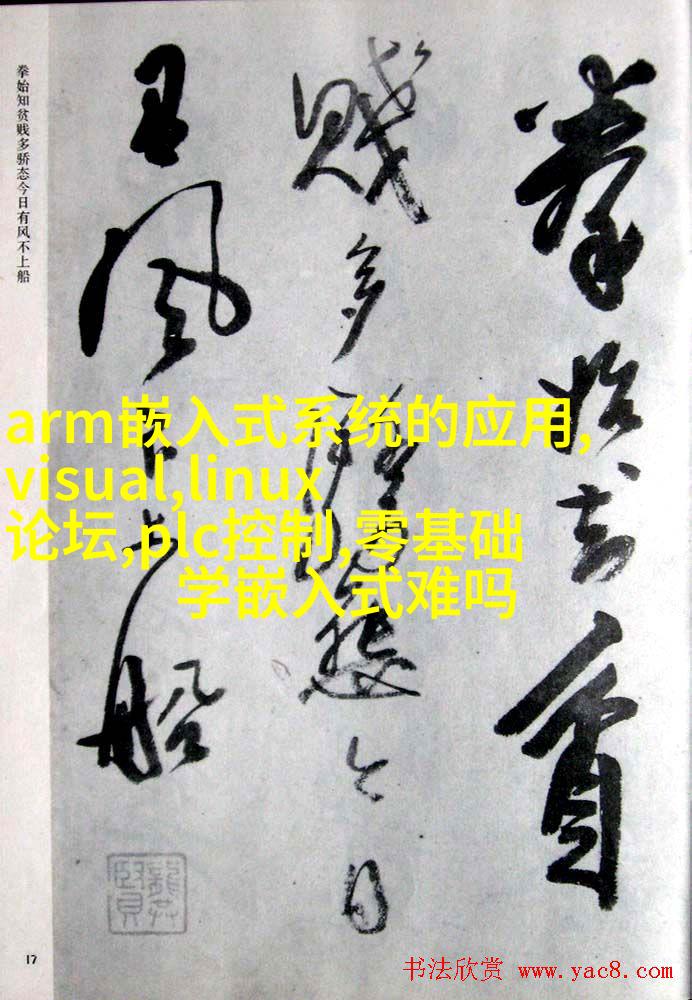 拳始知贫
贱多骄态今日
有风不上船
拳始知贫贱多骄态今日有风不上船
arm嵌入式系统的应用,
visual,linux
论坛,plc控制,零基础
学嵌入式难吗
17
书法欣赏 www.yac8.com